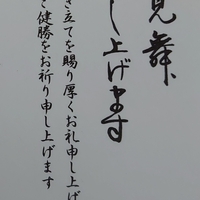 見舞
し上げます
き立てを賜り厚くお礼申し上げ
健勝をお祈り申し上げます